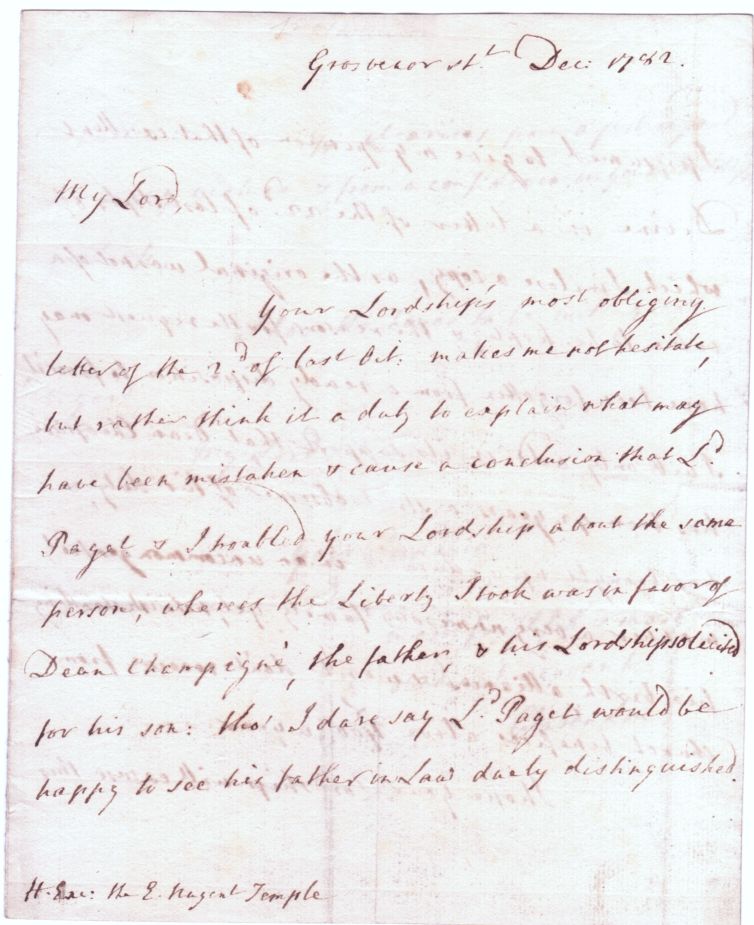 Grosvenor st.t Dec: 1782.
My Lord,
Your Lordship's most obliging
letter of the 2.d of last Oct: makes me not hesitate,
but rather think it a duty to explain what may
have been mistaken & cause a conclusion that L.d
Paget & I troubled your Lordship about the same
person, whereas the Liberty I took was in favor of
Dean Champigné, the father, & his Lordship solicited
for his son: tho' I dare say L.d Paget would be
happy to see his father in Law duely distinguished.
H. Exc: the E. Nugent Temple